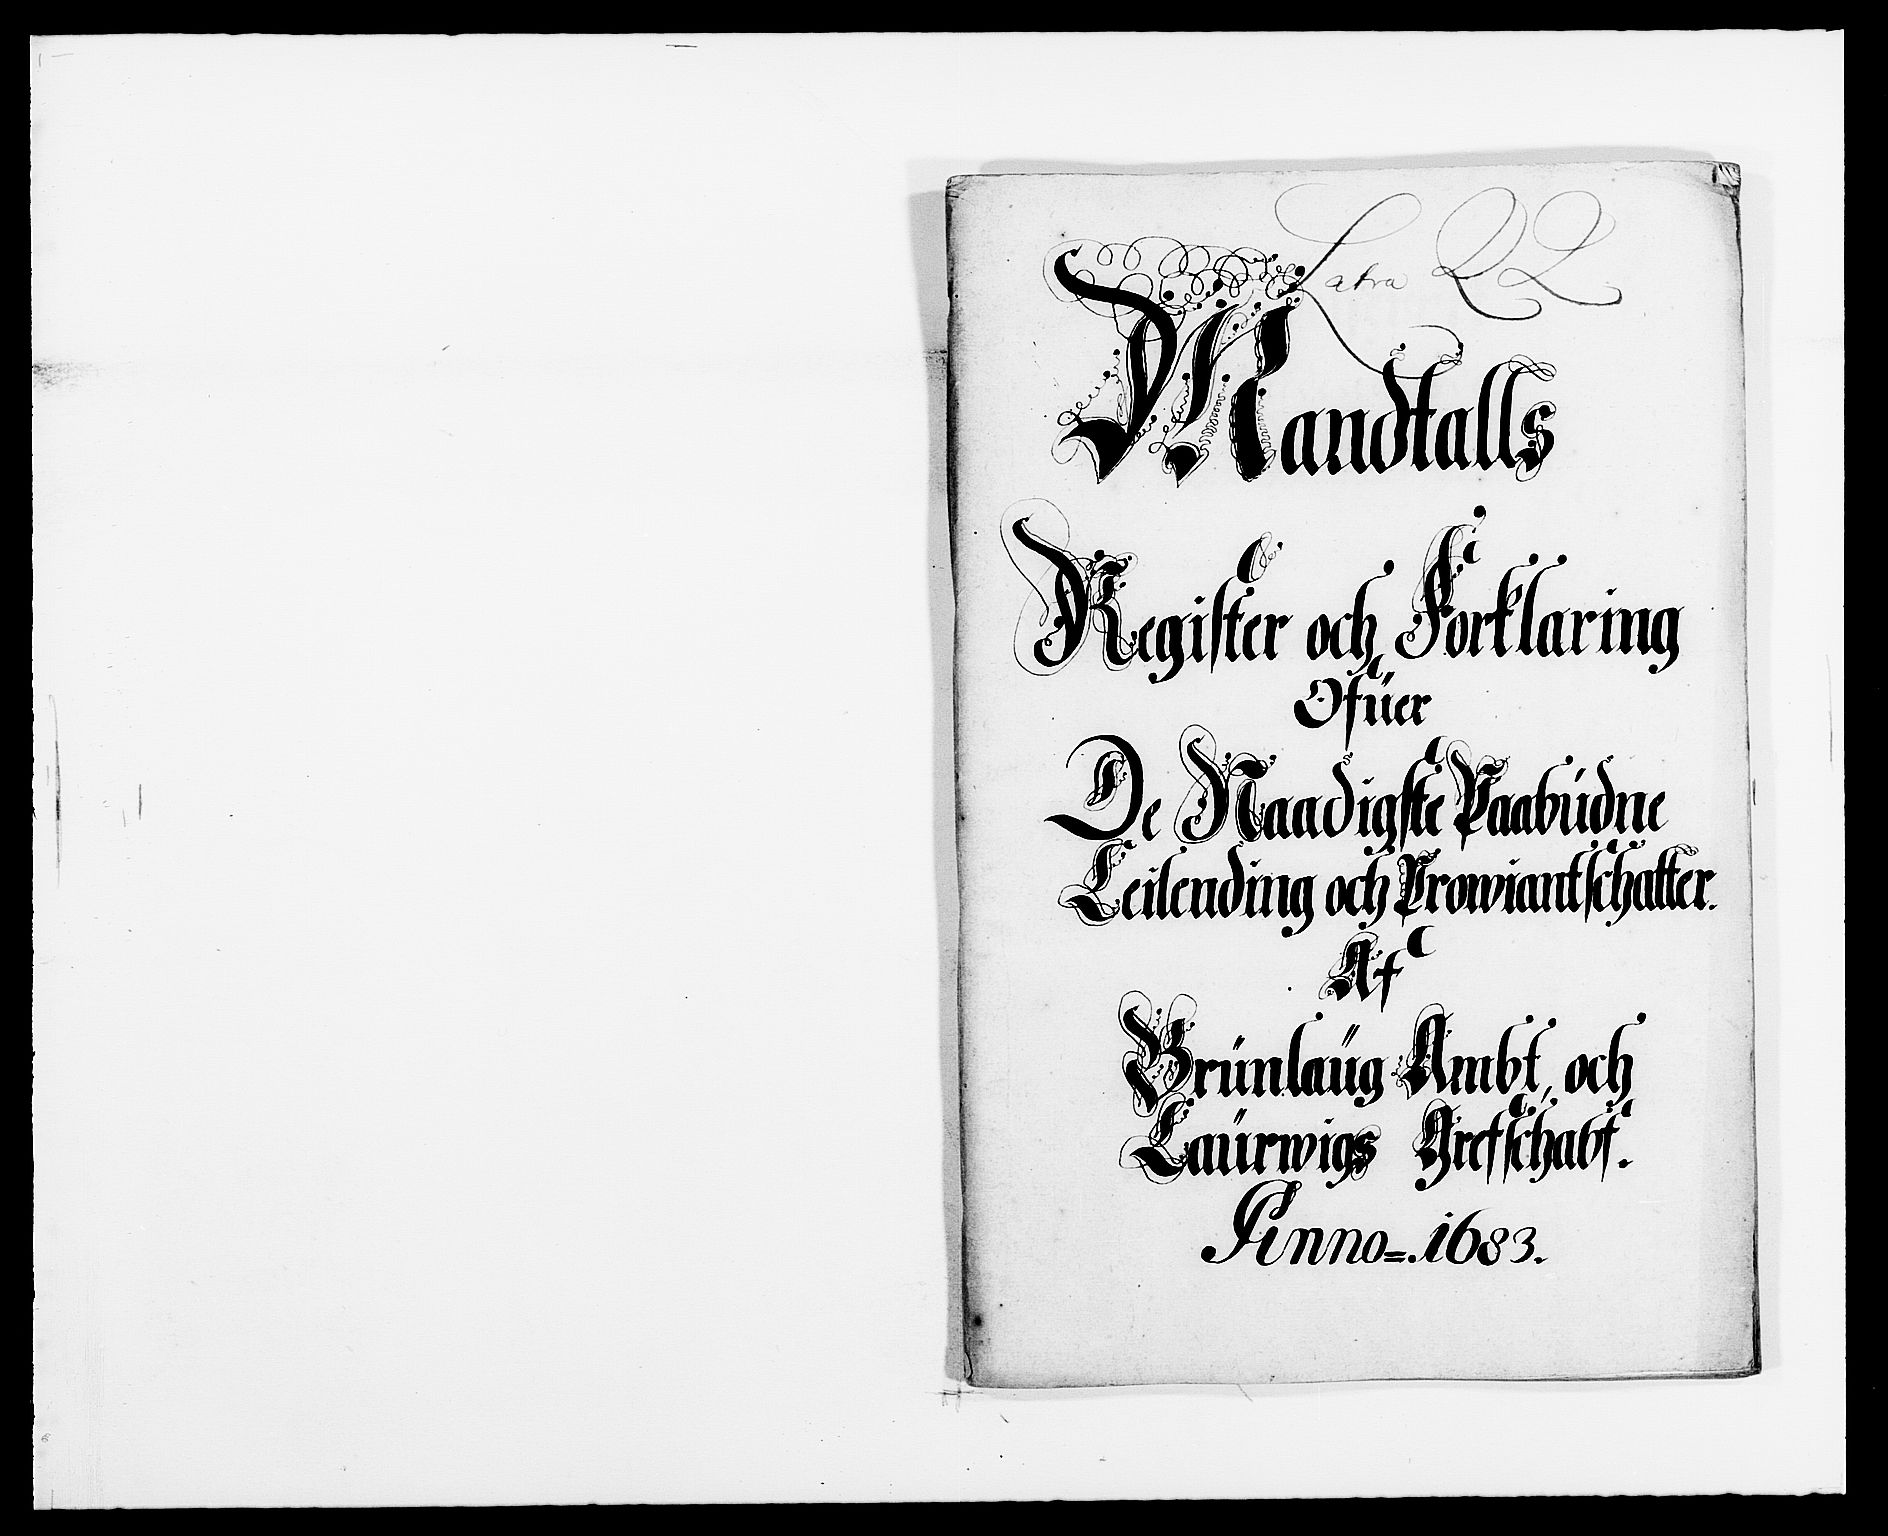 Latra QQ
Mandtalls
Register och Forklaring
Ofüer
De Naadigste Paabüdne
Leilending och Prowiantschatter.
Af
Brünlaüg Ambt, och
Laürwigs Grefschabt.
Anno=.1683.